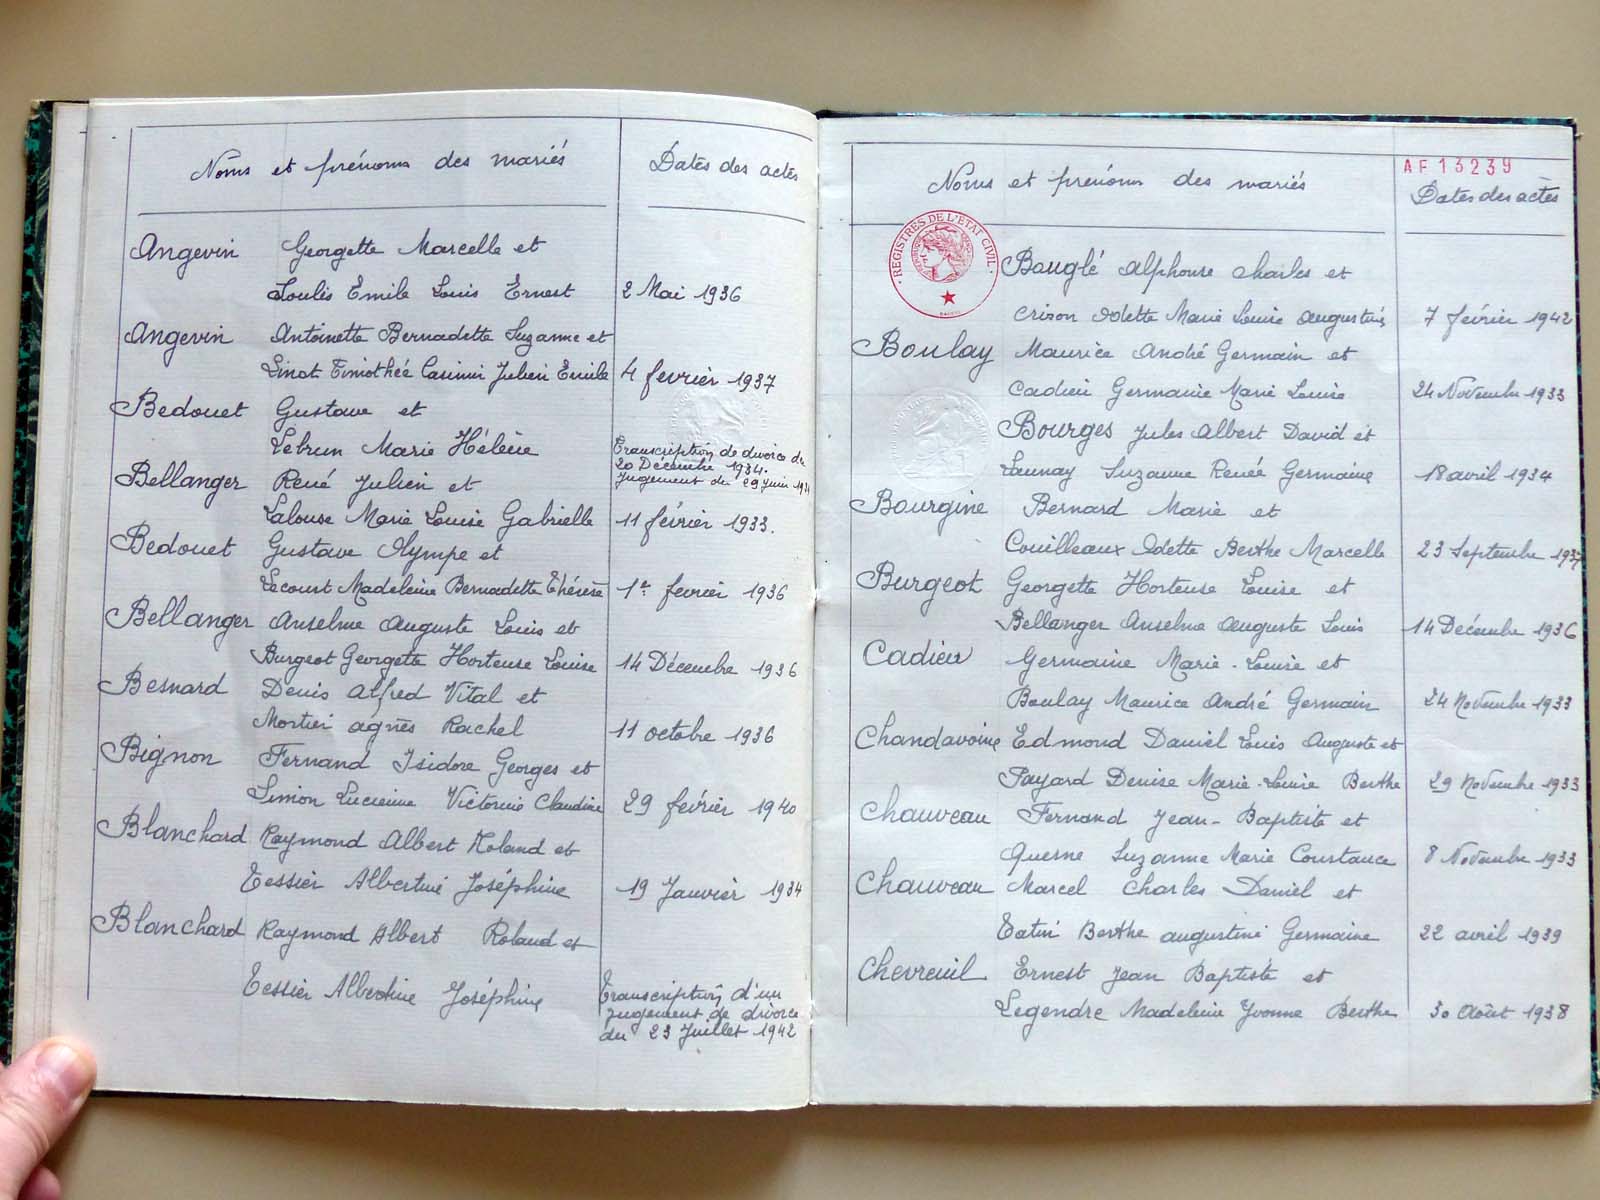 Noms et prénoms des mariés Dates des actes
Angevin Georgette Marcelle et
Soulis Emile Louis Ernest 2 Mai 1936
Angevin Antoinette Bernadette Suzanne et
Linot Timothée Casimir Julien Emile 4 fevrier 1937
Bedouet Gustave et
Lebrun Marie Hélène Transcription de divorce du
20 Décembre 1934.
Jugement du 29 Juin 1934
Bellanger René Julien et
Lalouse Marie Louise Gabrielle 11 février 1933.
Bedouet Gustave Olympe et
Lecourt Madeleine Bernadette Thérèse 1er fevrier 1936
Bellanger Anselme Auguste Louis et
Burgeot Georgette Hortense Louise 14 Décembre 1936
Besnard Denis Alfred Vital et
Mortier Agnès Rachel 11 octobre 1936
Bignon Fernand Isidore Georges et
Simon Lucienne Victorine Claudine 29 février 1940
Blanchard Raymond Albert Roland et
Tessier Albertine Joséphine 19 Janvier 1934
Blanchard Raymond Albert Roland et
Tessier Albertine Joséphine Transcription d'un
jugement de divorce
du 23 Juillet 1942
AF 13239
Noms et prénoms des mariés Dates des actes
REGISTRES DE L'ETAT CIVIL
Bouglé Alphonse Charles et
Crison Odette Marie Louise Augustine 7 février 1942
Boulay Maurice André Germain et
Cadieu Germaine Marie Louise 24 Novembre 1933
Bourges Jules Albert David et
Launay Suzanne Renée Germaine 18 avril 1934
Bourgine Bernard Marie et
Couilleaux Odette Berthe Marcelle 23 Septembre 1937
Burgeot Georgette Hortense Louise et
Bellanger Anselme Auguste Louis 14 Décembre 1936
Cadieu Germaine Marie-Louise et
Boulay Maurice André Germain 24 Novembre 1933
Chandavoine Edmond Daniel Louis Auguste et
Payard Denise Marie-Louise Berthe 29 Novembre 1933
Chauveau Fernand Jean-Baptiste et
Querne Suzanne Marie Constance 8 Novembre 1933
Chauveau Marcel Charles Daniel et
Tatin Berthe Augustine Germaine 22 avril 1939
Chevreuil Ernest Jean Baptiste et
Legendre Madeleine Yvonne Berthe 30 Août 1938